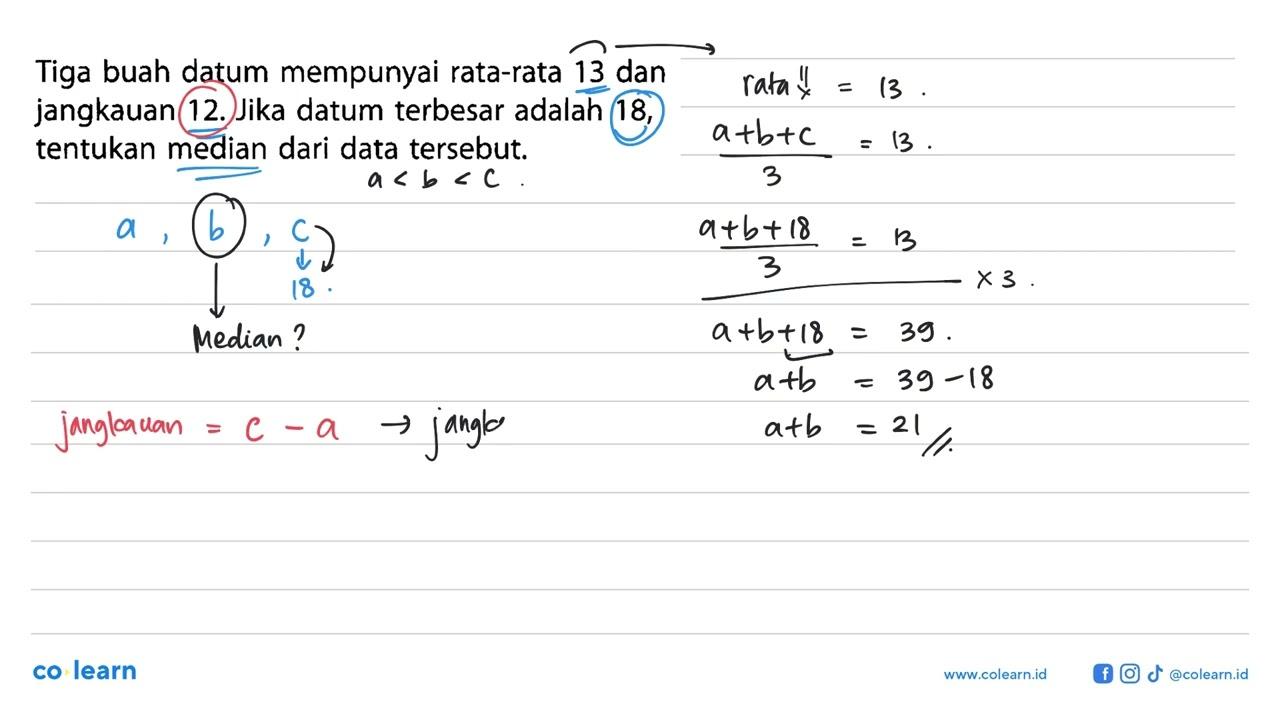 Tiga buah datum mempunyai rata-rata 13 dan
jangkauan 12. Jika datum terbesar adalah 18,
tentukan median dari data tersebut.
a < b < c .
a , b , c
18 .
Median ?
jangkauan = c - a → jangk
rata" = 13 .
a+b+c
3
= 13 .
a+b+18
3
= 13
× 3 .
a+b+18 = 39 .
a+b = 39 - 18
a+b = 21 //.
co learn
www.colearn.id
@colearn.id